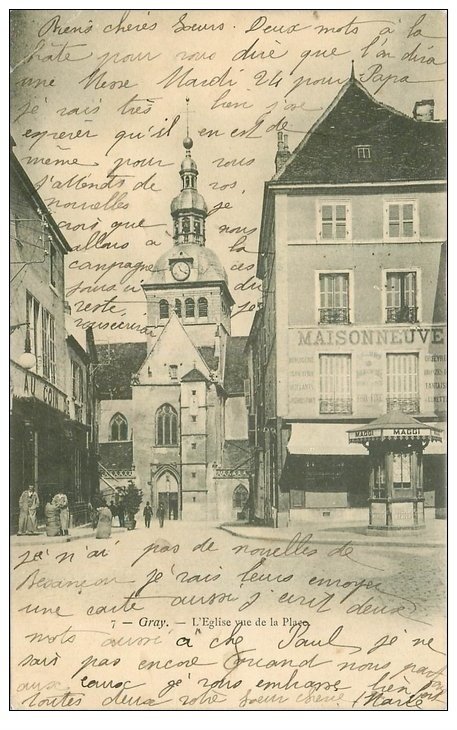 Biens chères Sœurs. Deux mots à la
hâte pour vous dire que l'on dira
une Messe Mardi 24 pour Papa
je vais très bien j'ose
espérer qu'il en est de
même pour vous
j'attends de vos
nouvelles je
crois que nous
allons à la
campagne ces
jours du
reste,
MAISONNEUVE
AU COIN
MAGGI
MAGGI
je n'ai pas de nouvelles de
Besançon je vais leurs envoyer
une carte aussi j'écrit deux
7 — Gray. — L'Eglise vue de la Place
mots aussi à che Paul, je ne
sais pas encore quand nous
aux je vous embrasse bien fort
toutes deux votre Sœur chérie. Marie